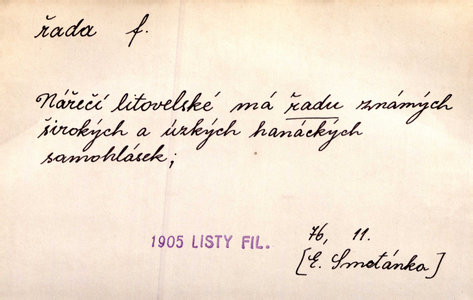 řada f.
Nářečí litovelské má řadu známých
širokých a úzkých hanáckých
samohlásek;
76, 11.
1905 LISTY FIL.
[E. Smetánka]